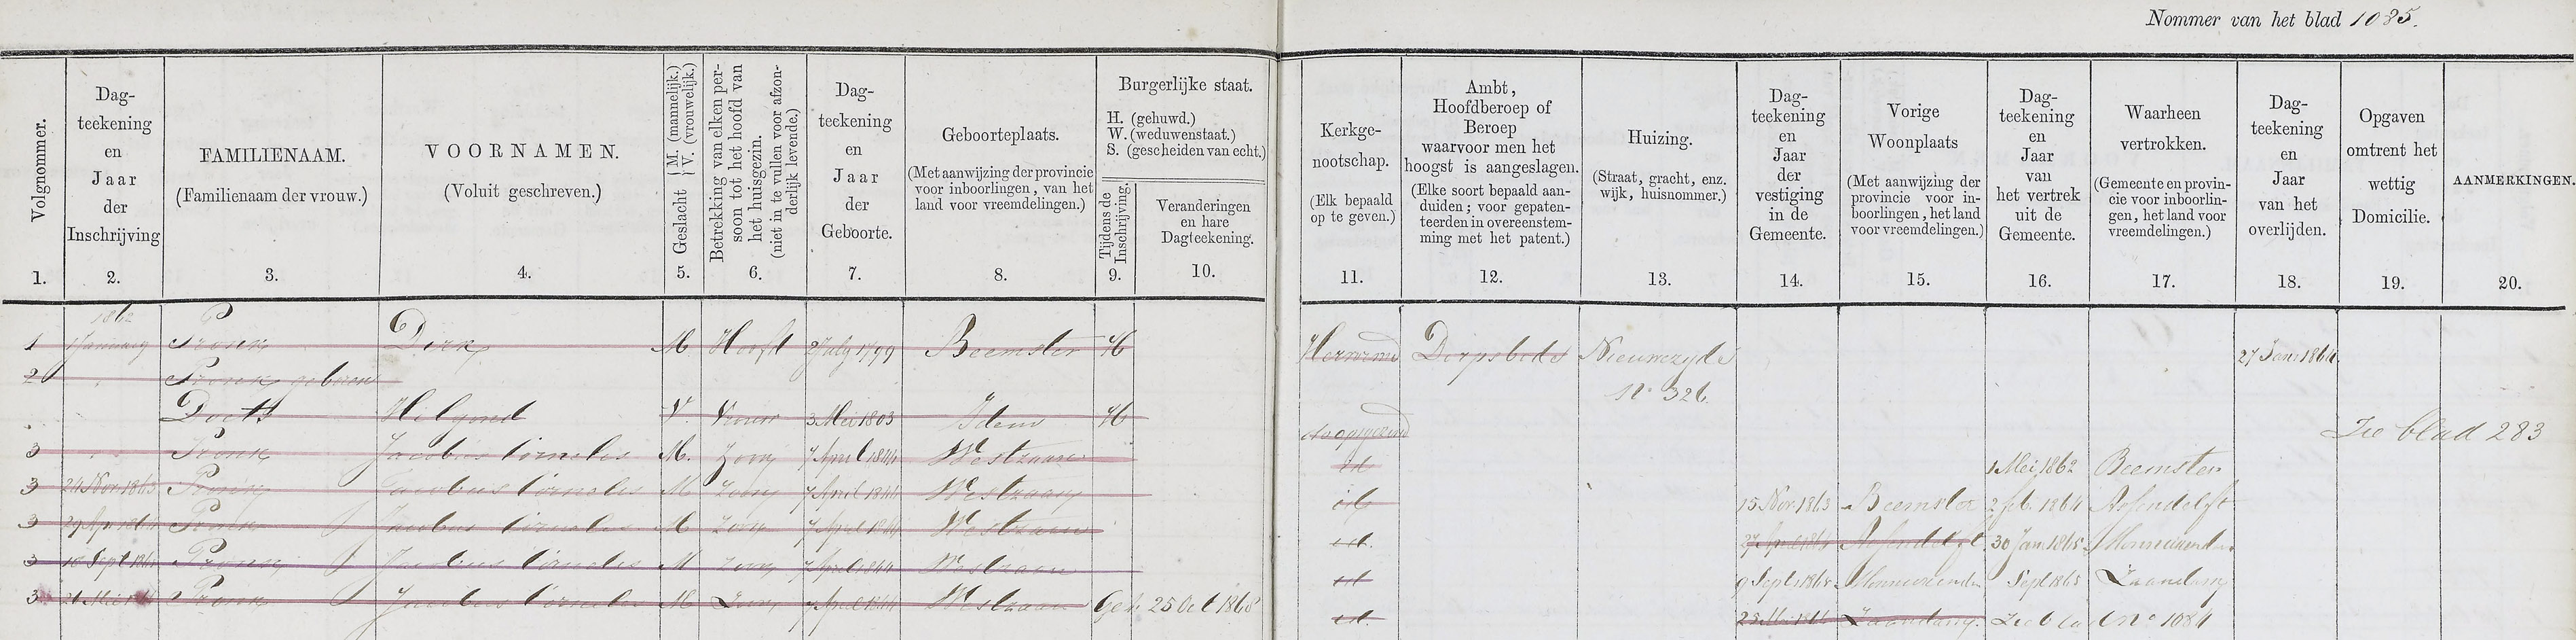 Nommer van het blad 1085.
Volgnommer.
1.
Dag-
teekening
en
Jaar
der
Inschrijving
2.
FAMILIENAAM.
(Familienaam der vrouw.)
3.
VOORNAMEN.
(Voluit geschreven.)
4.
Geslacht { M. (mannelijk.) V. (vrouwelijk.)
5.
Betrekking van elken per-
soon tot het hoofd van
het huisgezin.
(niet in te vullen voor afzon-
derlijk levende.)
6.
Dag-
teekening
en
Jaar
der
Geboorte.
7.
Geboorteplaats.
(Met aanwijzing der provincie
voor inboorlingen, van het
land voor vreemdelingen.)
8.
Burgerlijke staat.
H. (gehuwd.)
W. (weduwenstaat.)
S. (gescheiden van echt.)
Tijdens de
Inschrijving.
9.
Veranderingen
en hare
Dagteekening.
10.
Kerkge-
nootschap.
(Elk bepaald
op te geven.)
11.
Ambt,
Hoofdberoep of
Beroep
waarvoor men het
hoogst is aangeslagen.
(Elke soort bepaald aan-
duiden; voor gepaten-
teerden in overeenstem-
ming met het patent.)
12.
Huizing.
(Straat, gracht, enz.
wijk, huisnommer.)
13.
Dag-
teekening
en
Jaar
der
vestiging
in de
Gemeente.
14.
Vorige
Woonplaats
(Met aanwijzing der
provincie voor in-
boorlingen, het land
voor vreemdelingen.)
15.
Dag-
teekening
en
Jaar
van
het vertrek
uit de
Gemeente.
16.
Waarheen
vertrokken.
(Gemeente en provin-
cie voor inboorlin-
gen, het land voor
vreemdelingen.)
17.
Dag-
teekening
en
Jaar
van het
overlijden.
18.
Opgaven
omtrent het
wettig
Domicilie.
19.
AANMERKINGEN.
20.
1862
1 1 January Pronk Dirk M. Hooft 2 July 1799 Beemster H Hervormd Dorpsbode Nieuwezyde 27 Jan 1864
2 Pronk geboren
N° 326
Doets Hilgond V. Vrouw 3 Mei 1803 Idem H doopsgezind Zie blad 283
3 Pronk Jacobus Cornelis M. Zoon 7 April 1844 Westzaan id 1 Mei 1862 Beemster
3 24 Nov 1863 Pronk Jacobus Cornelis M Zoon 7 April 1844 Westzaan id 15 Nov 1863 Beemster 2 feb. 1864 Assendelft
3 29 Apr 1864 Pronk Jacobus Cornelis M Zoon 7 April 1844 Westzaan id. 27 April 1864 Assendelft 30 Jan 1865
3 Sept Pronk Jacobus Cornelis M Zoon 7 April 1844 Westzaan id 9 Sept 1865 Sept 1865 Zaandam
3 Pronk Jacobus Cornelis M Zoon 7 April 1844 Westzaan Geh. 25 Oct 1868 id. Zaandam Zie blad N° 1084